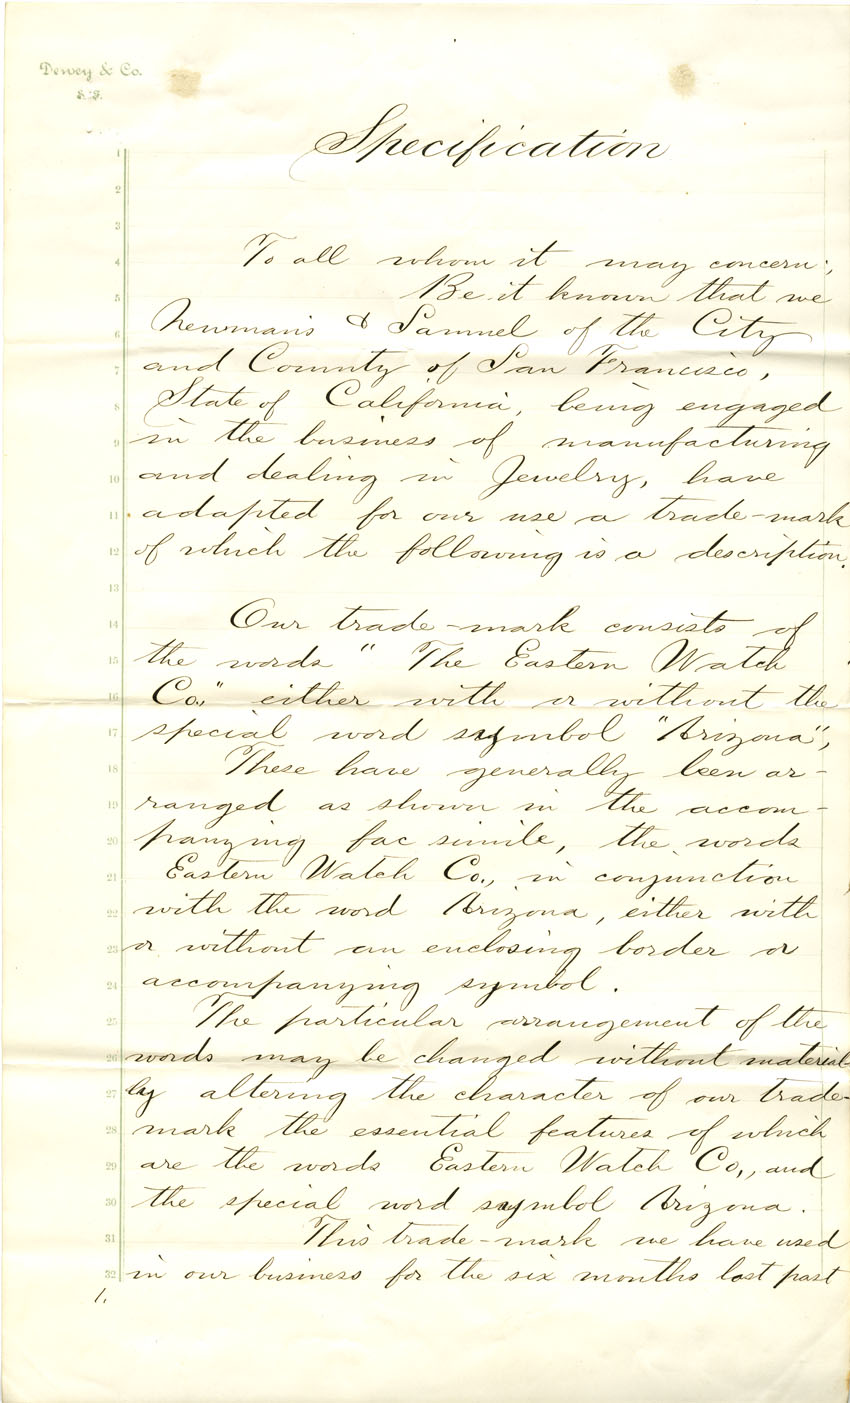 Dewey & Co.
S.F.
Specification
1
2
3
4 To all whom it may concern:,
5 Be it known that we
6 Newman's & Samuel of the City
7 and County of San Francisco,
8 State of California, being engaged
9 in the business of manufacturing
10 and dealing in Jewelry, have
11 adapted for our use a trade-mark
12 of which the following is a description.
13
14 Our trade-mark consists of
15 the words "The Eastern Watch
16 Co.," either with or without the
17 special word symbol "Arizona",
18 These have generally been ar-
19 ranged as shown in the accom-
20 panying fac simile, the words
21 Eastern Watch Co., in conjunction
22 with the word Arizona, either with
23 or without an enclosing border or
24 accompanying symbol.
25 The particular arrangement of the
26 words may be changed without material-
27 ly altering the character of our trade-
28 mark the essential features of which
29 are the words Eastern Watch Co., and
30 the special word symbol Arizona.
31 This trade-mark we have used
32 in our business for the six months last past
1.